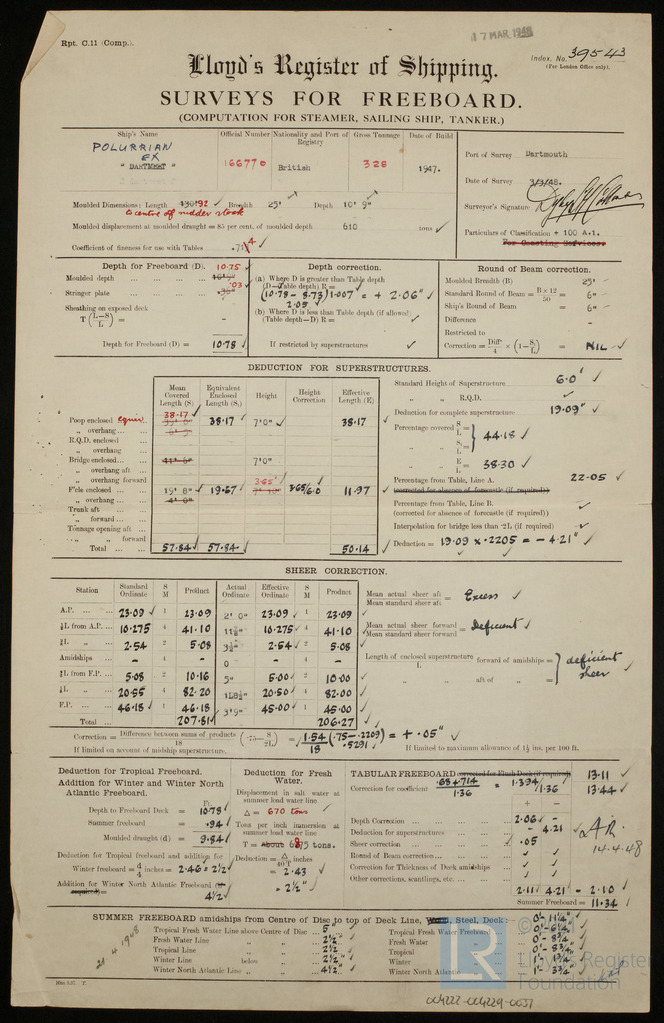 Rpt. C.11 (Comp.).
17 MAR 1948
Index. No. 39543
(For London Office only).
Lloyd's Register of Shipping.
SURVEYS FOR FREEBOARD.
(COMPUTATION FOR STEAMER, SAILING SHIP, TANKER.)
Ship's Name Official Number Nationality and Port of Registry Gross Tonnage Date of Build
POLURRIAN
EX
"DARTMEET" 166770 British 328 1947.
Port of Survey Dartmouth
Date of Survey 3/3/48.
Surveyor's Signature
Particulars of Classification + 100 A.1.
For Coasting Services.
Moulded Dimensions: Length 192 Breadth 25' Depth 10' 9"
to centre of rudder stock
Moulded displacement at moulded draught = 85 per cent. of moulded depth 610 tons
Coefficient of fineness for use with Tables .714
Depth for Freeboard (D).
Moulded depth 10.75
Stringer plate .03
Sheathing on exposed deck
T (L-S/L) = -
Depth for Freeboard (D) = 10.78
Depth correction.
(a) Where D is greater than Table depth
(D-Table depth) R =
(10.78 - 8.73) 1.007 = + 2.06"
2.05
(b) Where D is less than Table depth (if allowed)
(Table depth-D) R =
If restricted by superstructures
Round of Beam correction.
Moulded Breadth (B) 25'
Standard Round of Beam = B × 12/50 = 6"
Ship's Round of Beam = 6"
Difference -
Restricted to
Correction = Diffce/4 × (1-S1/L) = NIL
DEDUCTION FOR SUPERSTRUCTURES.
Mean Covered Length (S) Equivalent Enclosed Length (S1) Height Height Correction Effective Length (E)
Poop enclosed equiv. 38.17 38.17 7'0" 38.17
" overhang
R.Q.D. enclosed
" overhang
Bridge enclosed 41'6" 7'0"
" overhang aft
" overhang forward
F'cle enclosed 19' 8" 19.67 3.65' 3.65/6.0 11.97
" overhang
Trunk aft
" forward
Tonnage opening aft
" " forward
Total 57.84 57.84 50.14
Standard Height of Superstructure 6.0'
" " R.Q.D.
Deduction for complete superstructure 19.09"
Percentage covered S/L =
" " S1/L = 44.18
" " E/L = 38.30
Percentage from Table, Line A. 22.05
(corrected for absence of forecastle (if required))
Percentage from Table, Line B.
(corrected for absence of forecastle (if required))
Interpolation for bridge less than ·2L (if required)
Deduction = 19.09 × .2205 = - 4.21"
SHEER CORRECTION.
Station Standard Ordinate S M Product Actual Ordinate Effective Ordinate S M Product
A.P. 23.09 1 23.09 2' 0" 23.09 1 23.09
⅙L from A.P. 10.275 4 41.10 11½" 10.275 4 41.10
⅓L " 2.54 2 5.08 3½" 2.54 2 5.08
Amidships - 4 - 0 - 4 -
⅓L from F.P. 5.08 2 10.16 5" 5.00 2 10.00
⅙L " 20.55 4 82.20 1'8½" 20.50 4 82.00
F.P. 46.18 1 46.18 3'9" 45.00 1 45.00
Total 207.81 206.27
Mean actual sheer aft / Mean standard sheer aft = Excess
Mean actual sheer forward / Mean standard sheer forward = Deficient
Length of enclosed superstructure / L forward of amidships =
" " aft of " = deficient sheer
Correction = Difference between sums of products / 18 (.75 - S/2L) = 1.54/18 (.75 - .2209) = + .05"
.5291
If limited on account of midship superstructure.
If limited to maximum allowance of 1½ ins. per 100 ft.
Deduction for Tropical Freeboard.
Addition for Winter and Winter North Atlantic Freeboard.
Ft.
Depth to Freeboard Deck = 10.78
Summer freeboard = .94
Moulded draught (d) = 9.84
Deduction for Tropical freeboard and addition for
Winter freeboard = d/4 inches = 2.46 = 2½"
Addition for Winter North Atlantic Freeboard (if required) =
4½"
Deduction for Fresh Water.
Displacement in salt water at summer load water line
Δ = 670 tons
Tons per inch immersion at summer load water line
T = tons.
Deduction = Δ/40T inches
= 2.43
= 2½"
TABULAR FREEBOARD corrected for Flush Deck (if required) 13.11
Correction for coefficient .68 + .714 / 1.36 = 1.394/1.36 13.44
+ -
Depth Correction 2.06 -
Deduction for superstructures - 4.21
Sheer correction .05
Round of Beam correction
Correction for Thickness of Deck amidships
Other corrections, scantlings, etc.
2.11 4.21 - 2.10
Summer Freeboard = 11.34
14.4.48
SUMMER FREEBOARD amidships from Centre of Disc to top of Deck Line, Wood, Steel, Deck:- 0'- 11¼"
Tropical Fresh Water Line above Centre of Disc 5" Tropical Fresh Water Freeboard 0'- 6¼"
Fresh Water Line " " 2½" Fresh Water " 0'- 8¾"
Tropical Line " " 2½" Tropical " 0'- 8¾"
Winter Line below " 2½" Winter " 1'- 1¾"
Winter North Atlantic Line " " 4½" Winter North Atlantic " 1'- 3¾"
21 4 1948
LR
Lloyd's Register
Foundation
004222-004229-0037